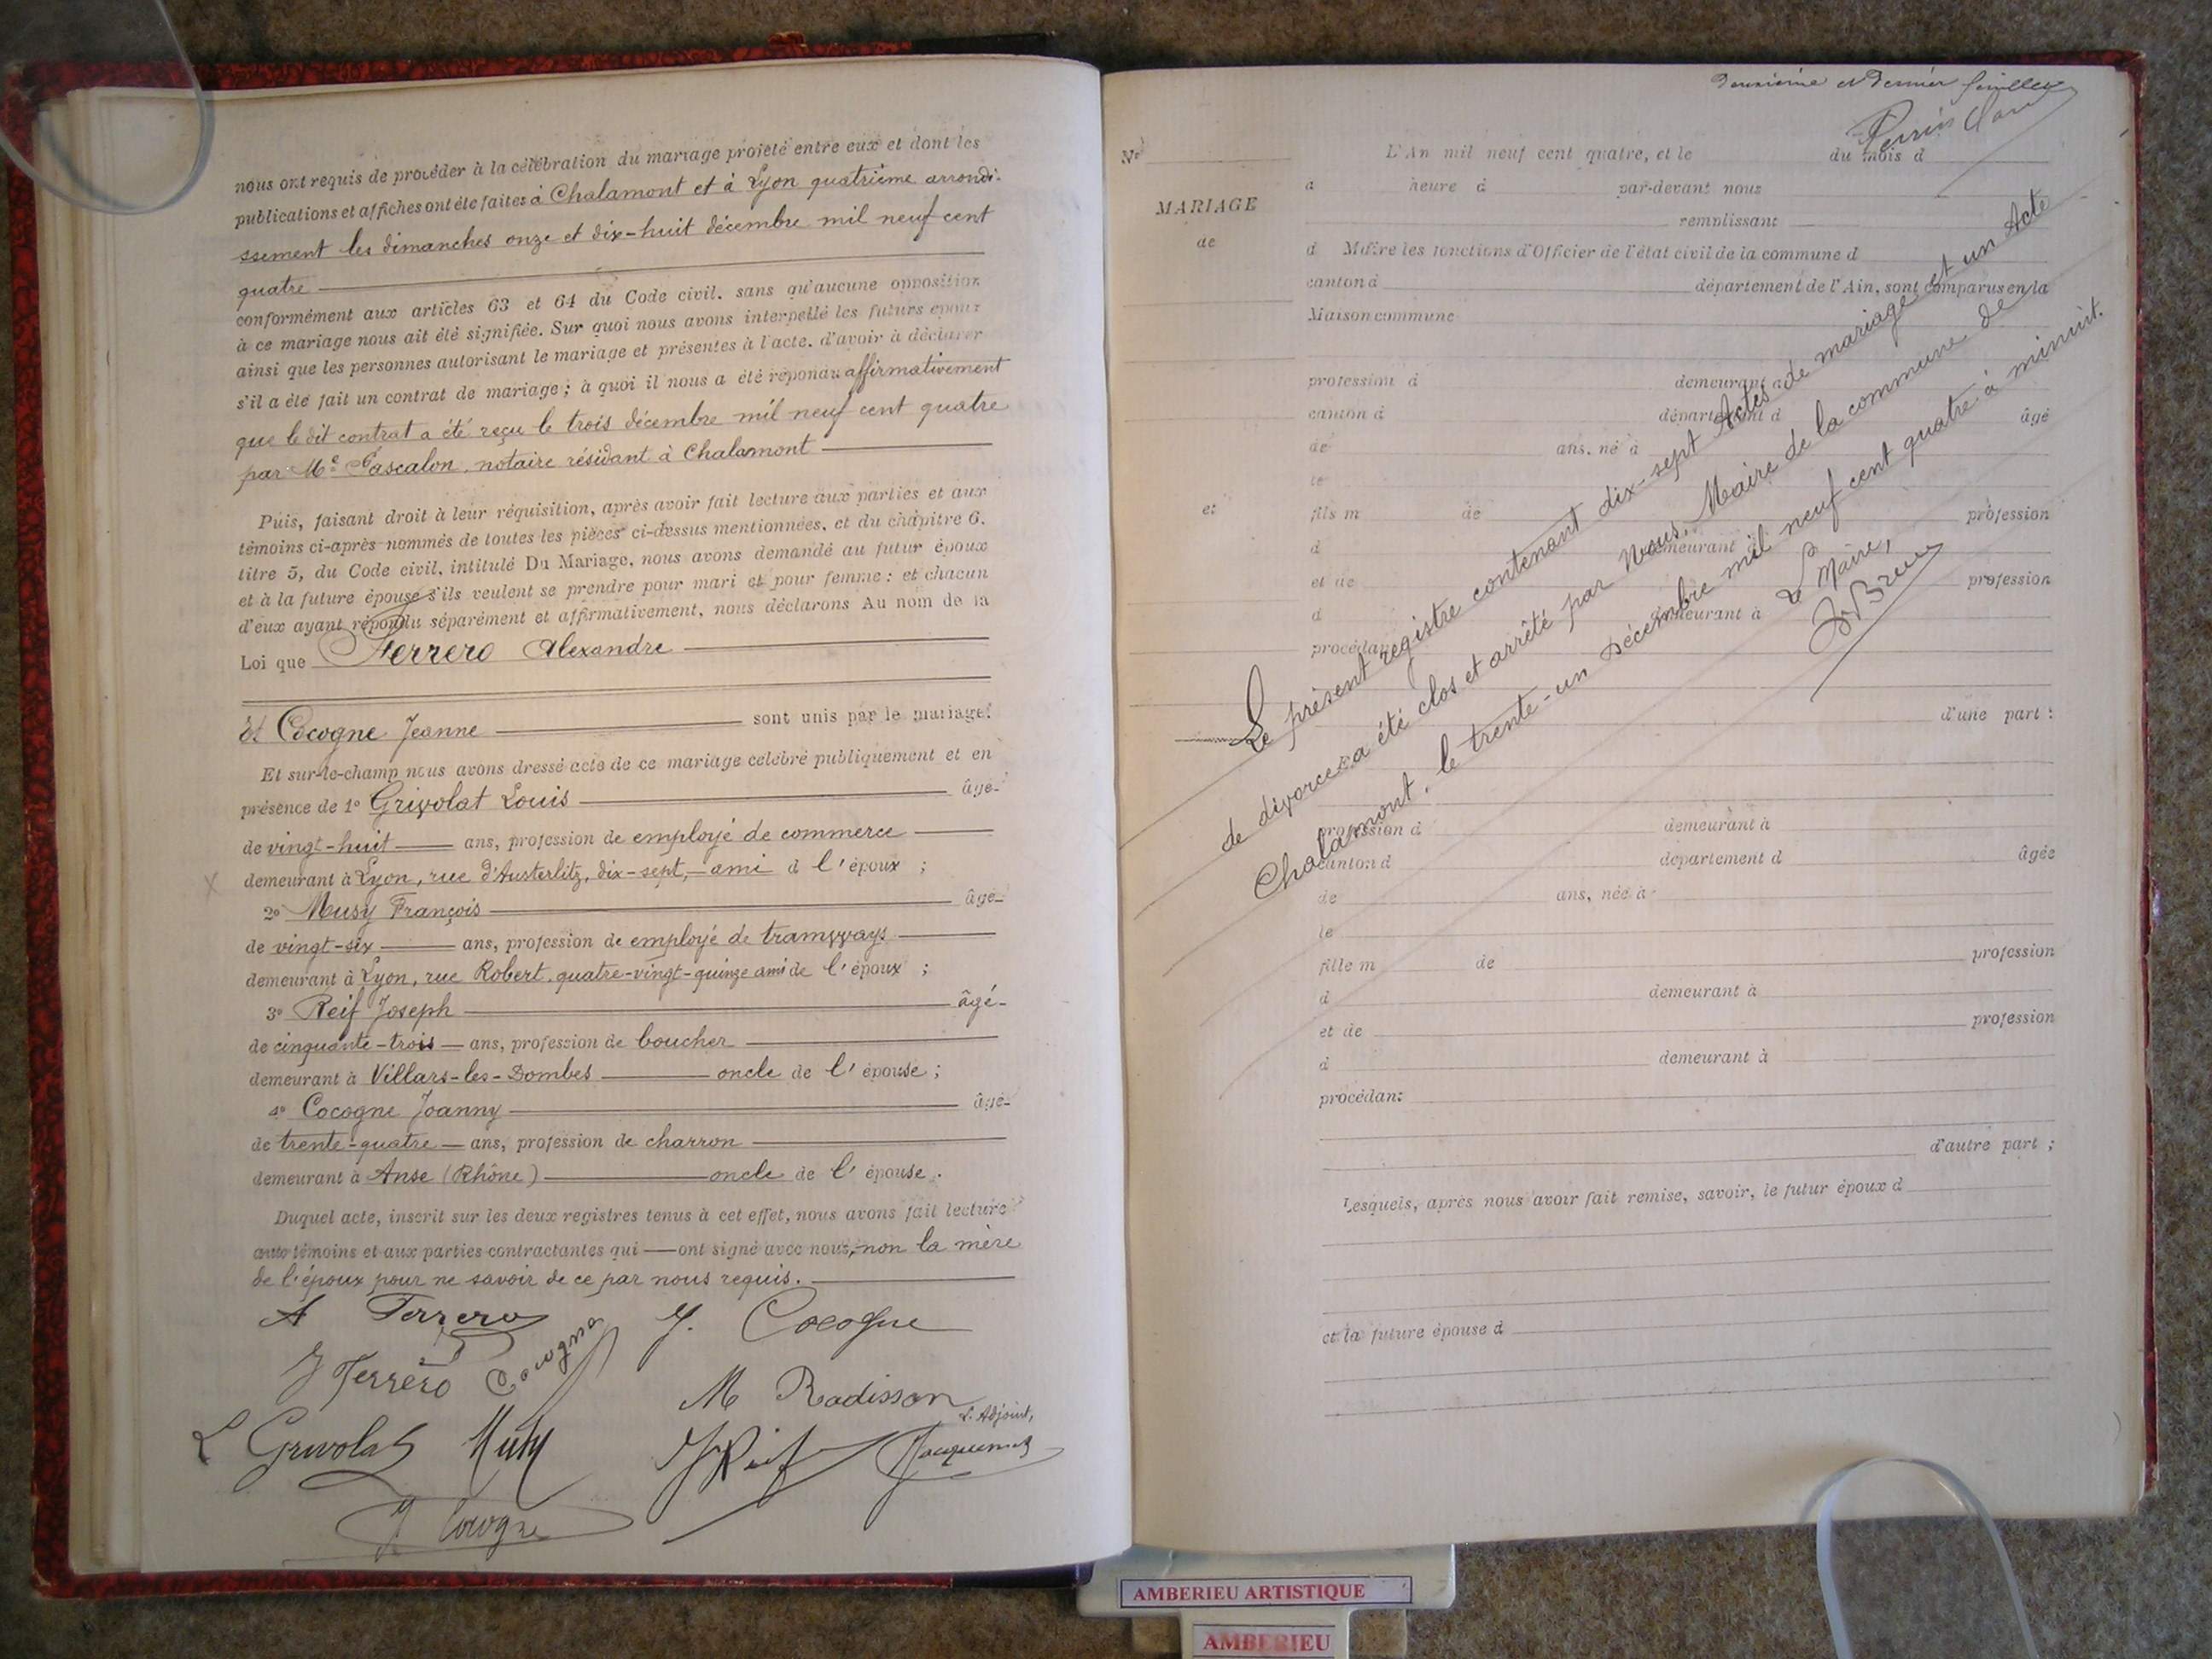 nous ont requis de procéder à la célébration du mariage projeté entre eux et dont les
publications et affiches ont été faites à Chalamont et à Lyon quatrième arrondi-
ssement les dimanches onze et dix-huit décembre mil neuf cent
quatre
conformément aux articles 63 et 64 du Code civil. sans qu'aucune opposition
à ce mariage nous ait été signifiée. Sur quoi nous avons interpellé les futurs époux
ainsi que les personnes autorisant le mariage et présentes à l'acte. d'avoir à déclarer
s'il a été fait un contrat de mariage ; à quoi il nous a été répondu affirmativement
que le dit contrat a été reçu le trois décembre mil neuf cent quatre
par Me Pascalon, notaire résidant à Chalamont
Puis, faisant droit à leur réquisition, après avoir fait lecture aux parties et aux
témoins ci-après nommés de toutes les pièces ci-dessus mentionnées, et du chapitre 6.
titre 5, du Code civil, intitulé Du Mariage, nous avons demandé au futur époux
et à la future épouse s'ils veulent se prendre pour mari et pour femme : et chacun
d'eux ayant répondu séparément et affirmativement, nous déclarons Au nom de la
Loi que Ferrero Alexandre
Et Cocogne Jeanne sont unis par le mariage.
Et sur-le-champ nous avons dressé acte de ce mariage célébré publiquement et en
présence de 1º Grivolat Louis âgé
de vingt-huit ans, profession de employé de commerce
demeurant à Lyon, rue d'Austerlitz, dix-sept, ami d l'époux ;
2º Musy François âgé
de vingt-six ans, profession de employé de tramways
demeurant à Lyon, rue Robert, quatre-vingt-quinze ami de l'époux ;
3º Reif Joseph âgé
de cinquante-trois ans, profession de boucher
demeurant à Villars-les-Dombes oncle de l'épouse ;
4º Cocogne Joanny âgé
de trente-quatre ans, profession de charron
demeurant à Anse (Rhône) oncle de l'épouse.
Duquel acte, inscrit sur les deux registres tenus à cet effet, nous avons fait lecture
aux témoins et aux parties contractantes qui ont signé avec nous, non la mère
de l'époux pour ne savoir de ce par nous requis.
A Ferrero J. Cocogne
J Ferrero Cocogne
M Radisson
L Grivolat Musy J Reif L'Adjoint, Jacquemet
J Cocogne
deuxième et dernier feuillet
Perrin
Nº
MARIAGE
de
et
L'An mil neuf cent quatre, et le du mois d
a heure d par-devant nous
remplissant
d Maire les fonctions d'Officier de l'état civil de la commune d
canton d département de l'Ain, sont comparus en la
Maison commune
profession d demeurant à
canton d département d âgé
de ans, né à
le
fils m de profession
d demeurant à
et de profession
d demeurant à
procédant
d'une part :
profession d demeurant à
canton d département d âgée
de ans, née à
le
fille m de profession
d demeurant à
et de profession
d demeurant à
procédant
d'autre part ;
Lesquels, après nous avoir fait remise, savoir, le futur époux d
et la future épouse d
Le présent registre contenant dix-sept Actes de mariage et un Acte
de divorce a été clos et arrêté par Nous, Maire de la commune de
Chalamont, le trente-un Décembre mil neuf cent quatre à minuit.
Le Maire,
AMBERIEU ARTISTIQUE
AMBERIEU